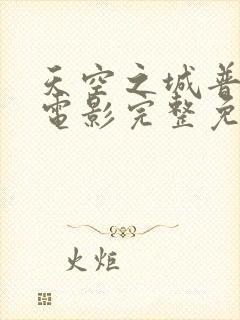 天空之城普
電影完整免
火炬